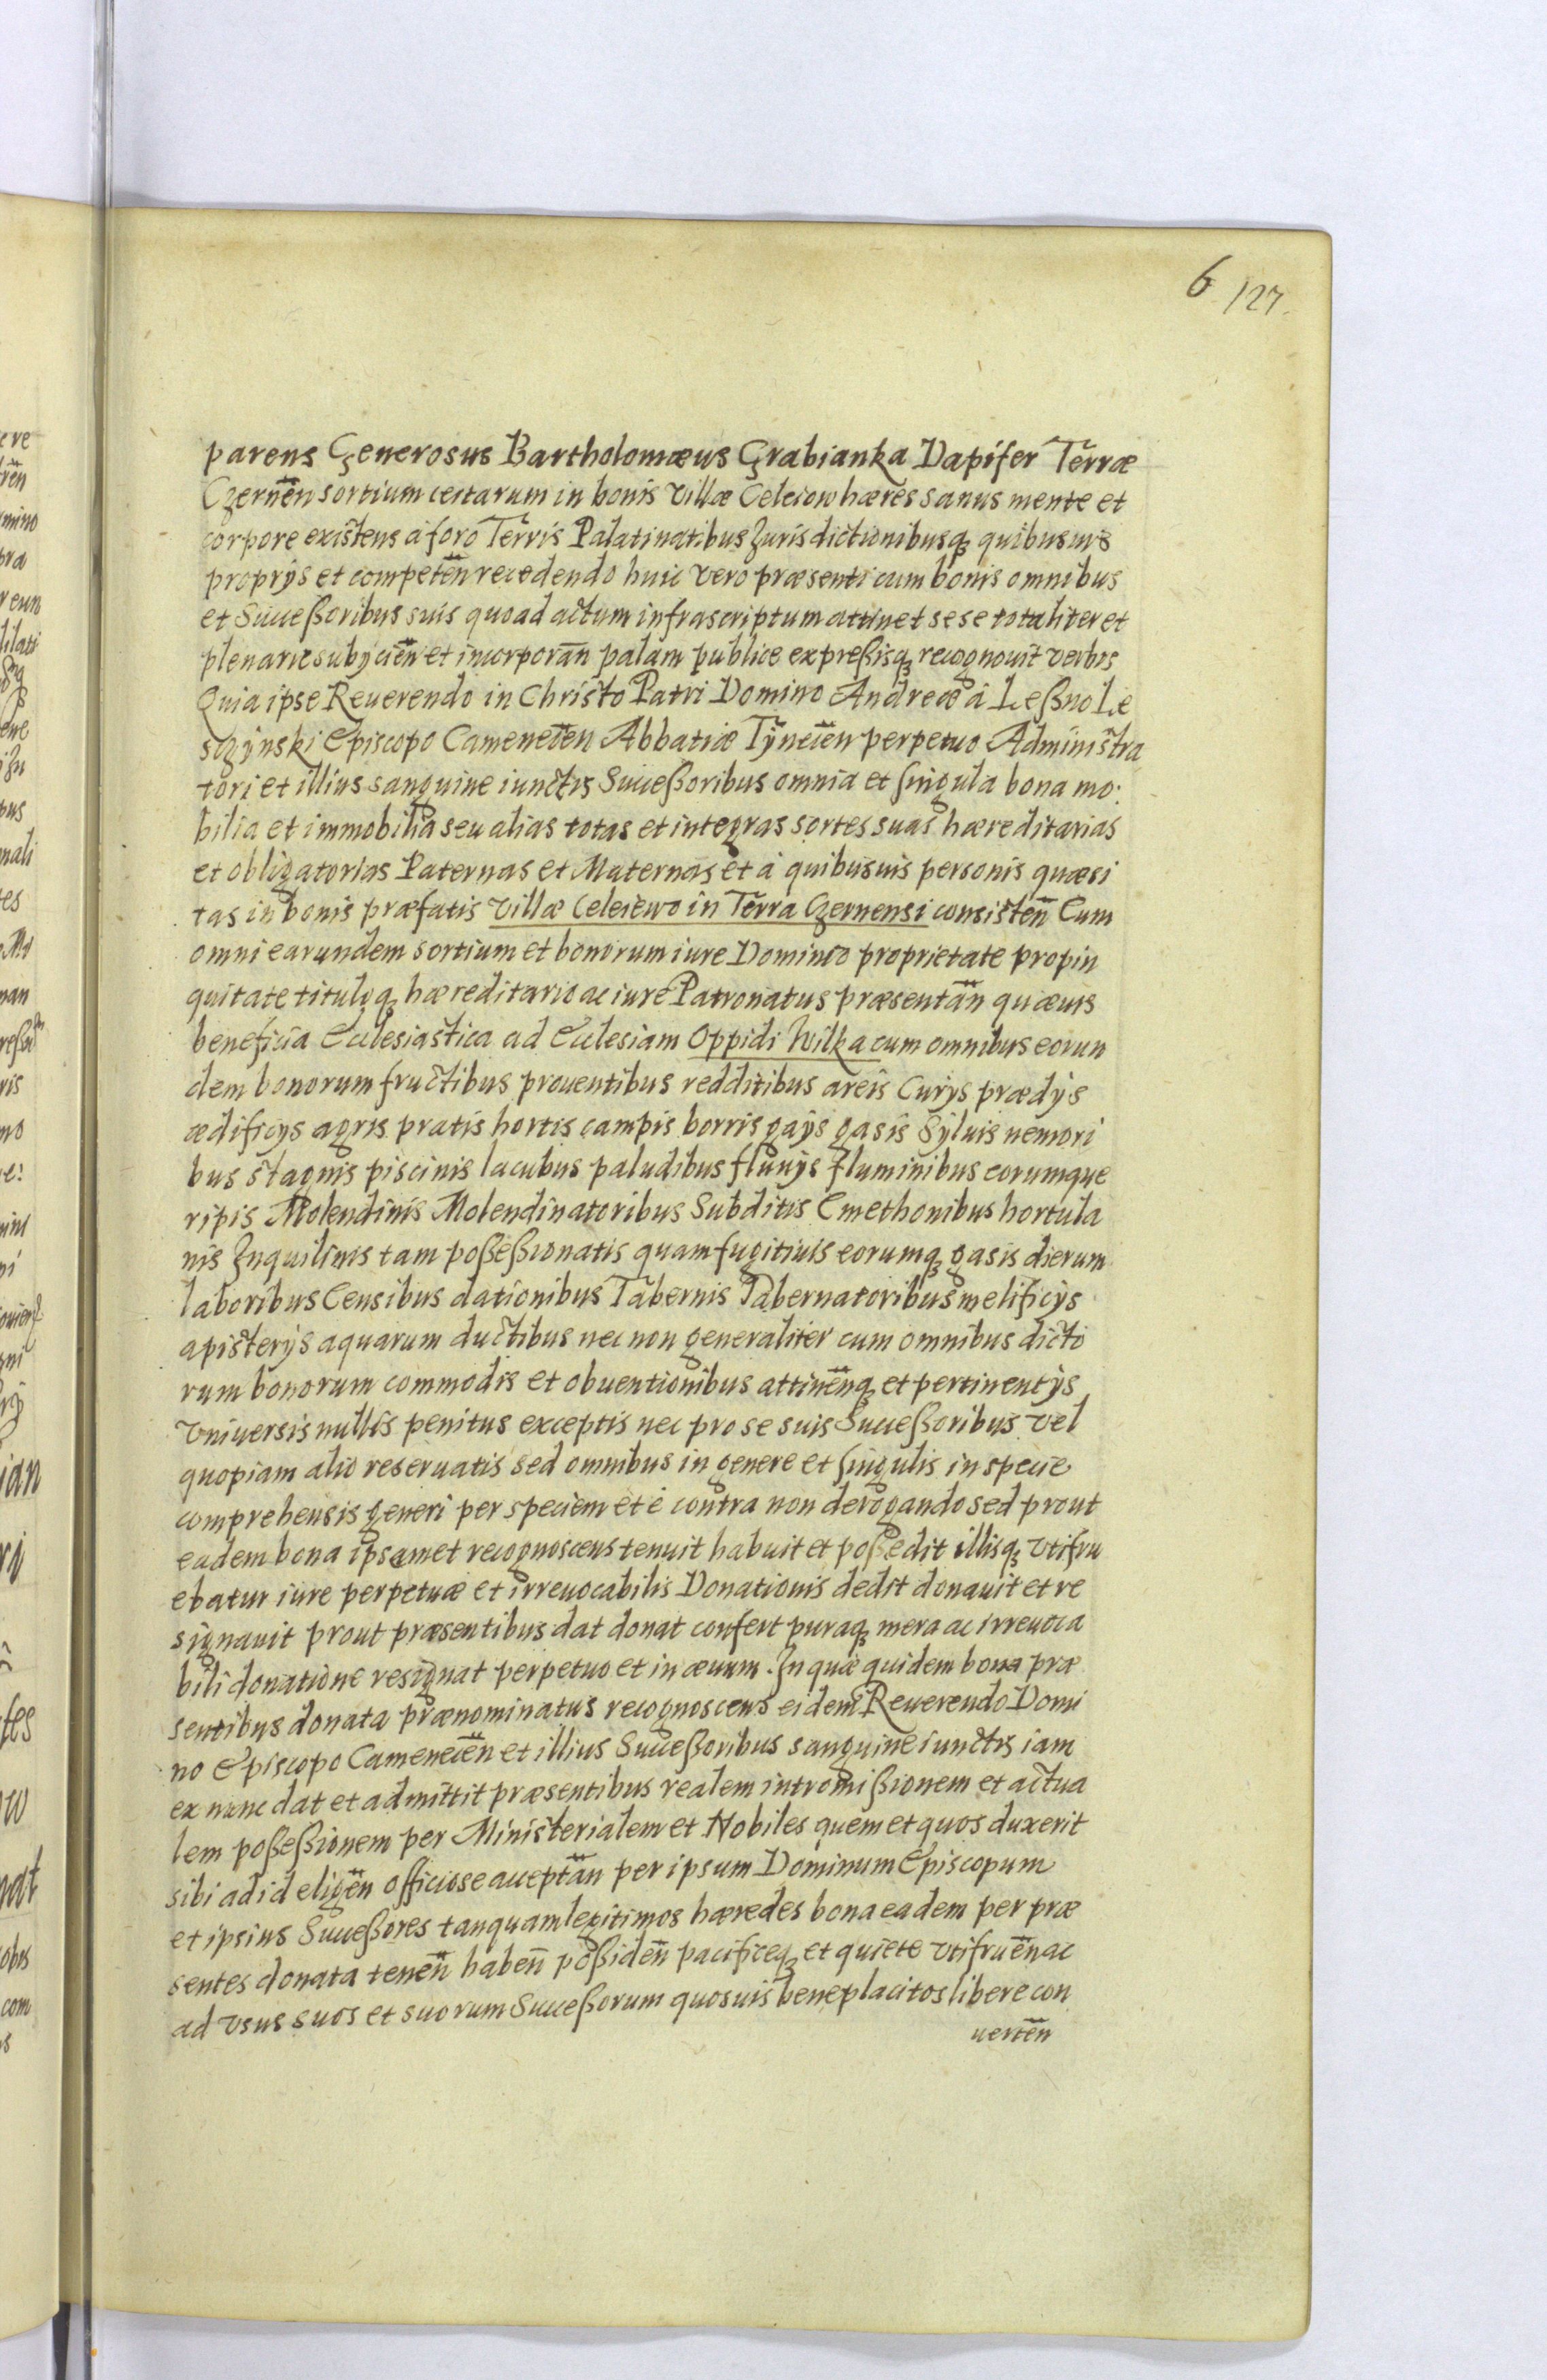 6 127.
parens Generosus Bartholomæus Grabianka Dapifer Terræ
Czernen̄ sortium certarum in bonis villæ Celeiow hæres sanus mente et
corpore existens à foro Terris Palatinatibus Jurisdictionibusq quibusuis
proprijs et competen̄ recedendo huic vero præsenti cum bonis omnibus
et Succeßoribus suis quoad actum infrascriptum attinet sese totaliter et
plenarie subijcien̄ et incorporan̄ palam publice expreßisq recognouit verbis
Quia ipse Reuerendo in Christo Patri Domino Andreæ à Leßno Le
sczynski Episcopo Camenecen̄ Abbatiæ Tynecien̄ perpetuo Administra
tori et illius sanguine iunctis Succeßoribus omnia et singula bona mo:
bilia et immobilia seu alias totas et integras sortes suas hæreditarias
et obligatorias Paternas et Maternas et à quibusuis personis quæsi
tas in bonis præfatis villæ Celeiewo in Terra Czernensi consisten̄ Cum
omni earundem sortium et bonorum iure Dominio proprietate propin
quitate tituloq hæreditario ac iure Patronatus præsentan̄ quæuis
beneficia Ecclesiastica ad Ecclesiam Oppidi Wilka cum omnibus eorun
dem bonorum fructibus prouentibus redditibus areis Curijs prædijs
ædificijs agris pratis hortis campis borris gaijs gasis Syluis nemori
bus stagnis piscinis lacubus paludibus fluuijs fluminibus eorumque
ripis Molendinis Molendinatoribus Subditis Cmethonibus hortula
nis Inquilinis tam poßeßionatis quam fugitiuis eorumq gasis dierum
laboribus Censibus dationibus Tabernis Tabernatoribus melificijs
apisterijs aquarum ductibus nec non generaliter cum omnibus dicto
rum bonorum commodis et obuentionibus attinen̄q et pertinentijs
vniuersis nullis penitus exceptis nec pro se suis Succeßoribus vel
quopiam alio reseruatis sed omnibus in genere et singulis in specie
comprehensis generi per speciem et è contra non derogando sed prout
eadem bona ipsamet recognoscens tenuit habuit et poßedit illisq vtifru
ebatur iure perpetuæ et irreuocabilis Donationis dedit donauit et re
signauit prout præsentibus dat donat confert puraq mera ac irreuoca
bili donatione resignat perpetuo et in æuum. In quæ quidem bona præ
sentibus donata prænominatus recognoscens eidem Reuerendo Domi
no Episcopo Camenecen̄ et illius Succeßoribus sanguine iunctis iam
ex nunc dat et admittit præsentibus realem intromißionem et actua
lem poßeßionem per Ministerialem et Nobiles quem et quos duxerit
sibi ad id eligen̄ officiose acceptan̄ per ipsum Dominum Episcopum
et ipsius Succeßores tanquam legitimos hæredes bona eadem per præ
sentes donata tenen̄ haben̄ poßiden̄ pacificeq et quiete vtifruen̄ ac
ad vsus suos et suorum Succeßorum quosuis beneplacitos libere con
uerten̄